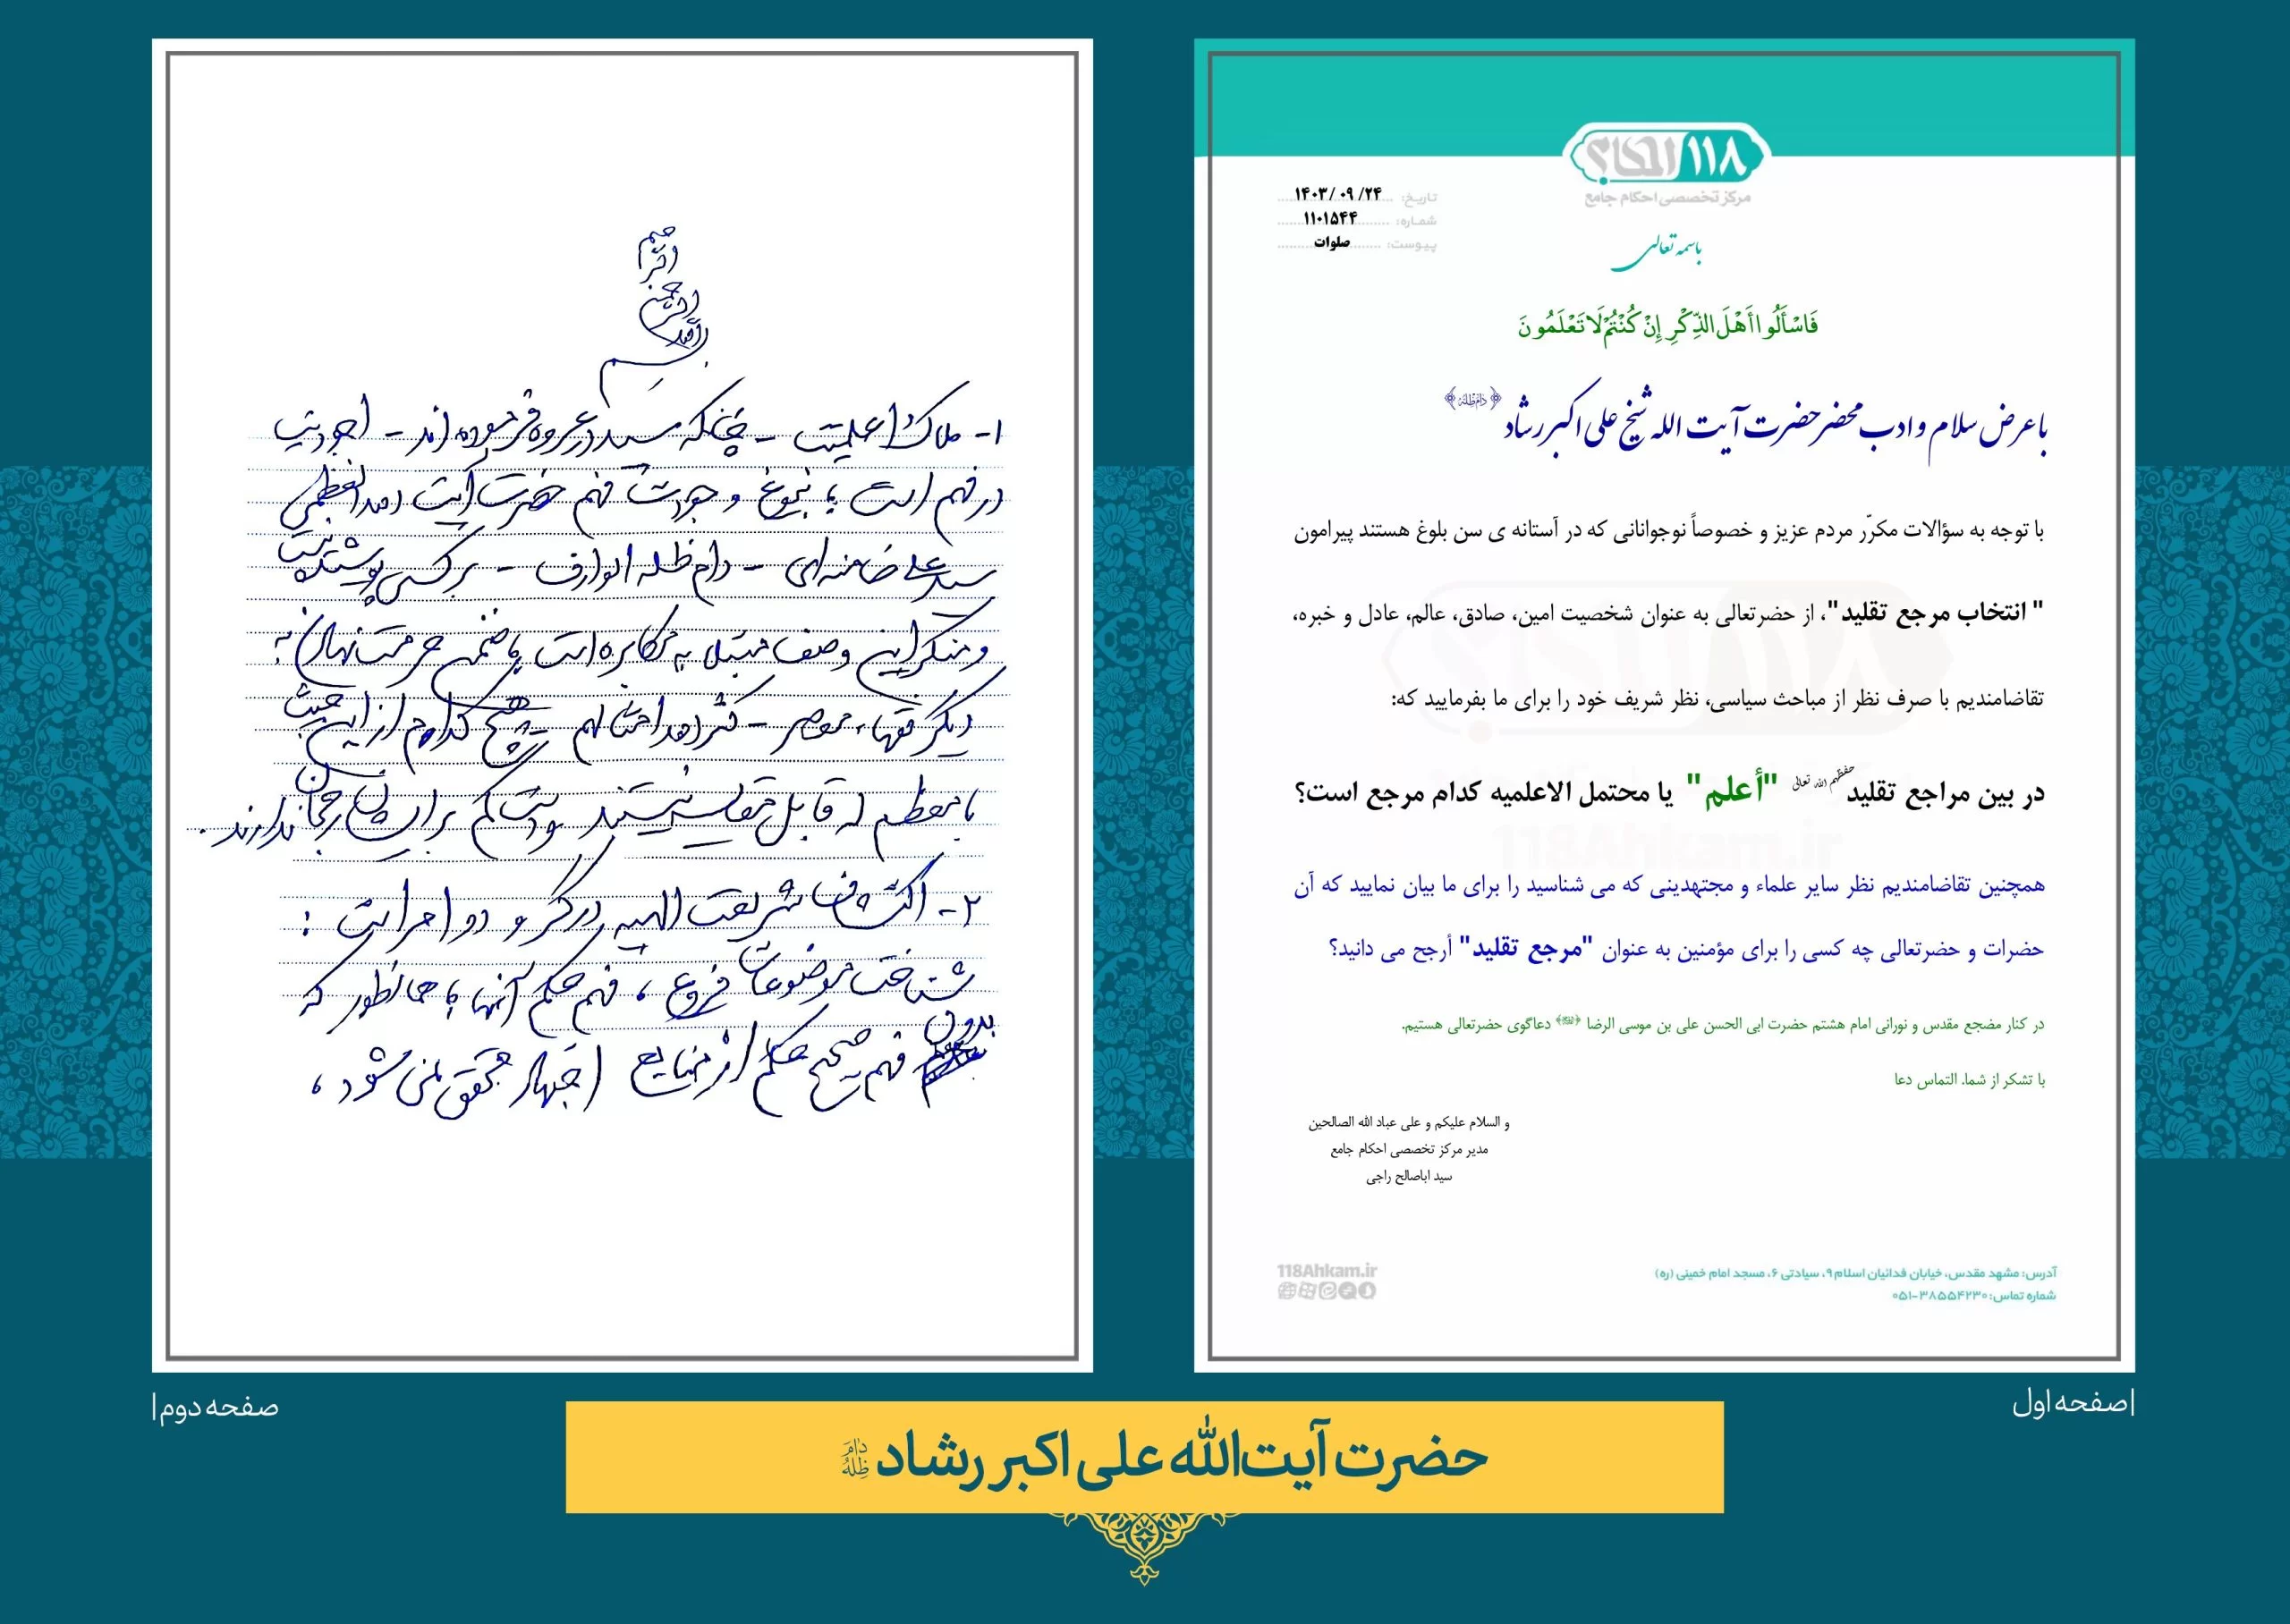 ۱۱۸ احکام؟
مرکز تخصصی احکام جامع
تاریخ: ۱۴۰۳/۰۹/۲۴
شماره: ۱۱۰۱۵۴۴
پیوست: صلوات
باسمه تعالی
فَاسْأَلُوا أَهْلَ الذِّكْرِ إِنْ كُنْتُمْ لَا تَعْلَمُونَ
با عرض سلام و ادب محضر حضرت آیت الله شیخ علی اکبر رشاد ﴿دام ظله﴾
با توجه به سؤالات مکرّر مردم عزیز و خصوصاً نوجوانانی که در آستانه ی سن بلوغ هستند پیرامون
" انتخاب مرجع تقلید"، از حضرتعالی به عنوان شخصیت امین، صادق، عالم، عادل و خبره،
تقاضامندیم با صرف نظر از مباحث سیاسی، نظر شریف خود را برای ما بفرمایید که:
در بین مراجع تقلید حفظهم الله تعالی "أعلم" یا محتمل الاعلمیه کدام مرجع است؟
118Ahkam.ir
همچنین تقاضامندیم نظر سایر علماء و مجتهدینی که می شناسید را برای ما بیان نمایید که آن
حضرات و حضرتعالی چه کسی را برای مؤمنین به عنوان "مرجع تقلید" أرجح می دانید؟
در کنار مضجع مقدس و نورانی امام هشتم حضرت ابی الحسن علی بن موسی الرضا دعاگوی حضرتعالی هستیم.
با تشکر از شما. التماس دعا
و السلام علیکم و علی عباد الله الصالحین
مدیر مرکز تخصصی احکام جامع
سید اباصالح راجی
آدرس: مشهد مقدس، خیابان فدائیان اسلام ۹، سیادتی ۶، مسجد امام خمینی (ره)
شماره تماس: ۳۸۵۵۴۲۳۰-۰۵۱
118Ahkam.ir
|صفحه اول
بسم الله الرحمن الرحیم
۱- ملاک اعلمیت - چنانکه سید در عروه فرموده‌اند - اجودیت
در فهم است؛ نبوغ و جودت فهم حضرت آیت الله العظمی
سید علی خامنه‌ای - دام ظله الوارف - بر کسی پوشیده نیست
و منکر این وصف مبتلا به مکابره است؛ با ضمن حرمت نهادن به
دیگر فقهاء معاصر - کثر الله امثالهم - هیچ کدام از این حیث
با معظم له قابل مقایسه نیستند و دست کم بر ایشان رجحان ندارند.
۲- اکتشاف شریعت الهیه در گرو دو امر است:
شناخت موضوعات فروع، فهم حکم آنها؛ همانطور که
بدون فهم صحیح حکم از منابع اجتهاد محقق نمی شود،
صفحه دوم|
حضرت آیت‌الله علی اکبر رشاد دام ظله